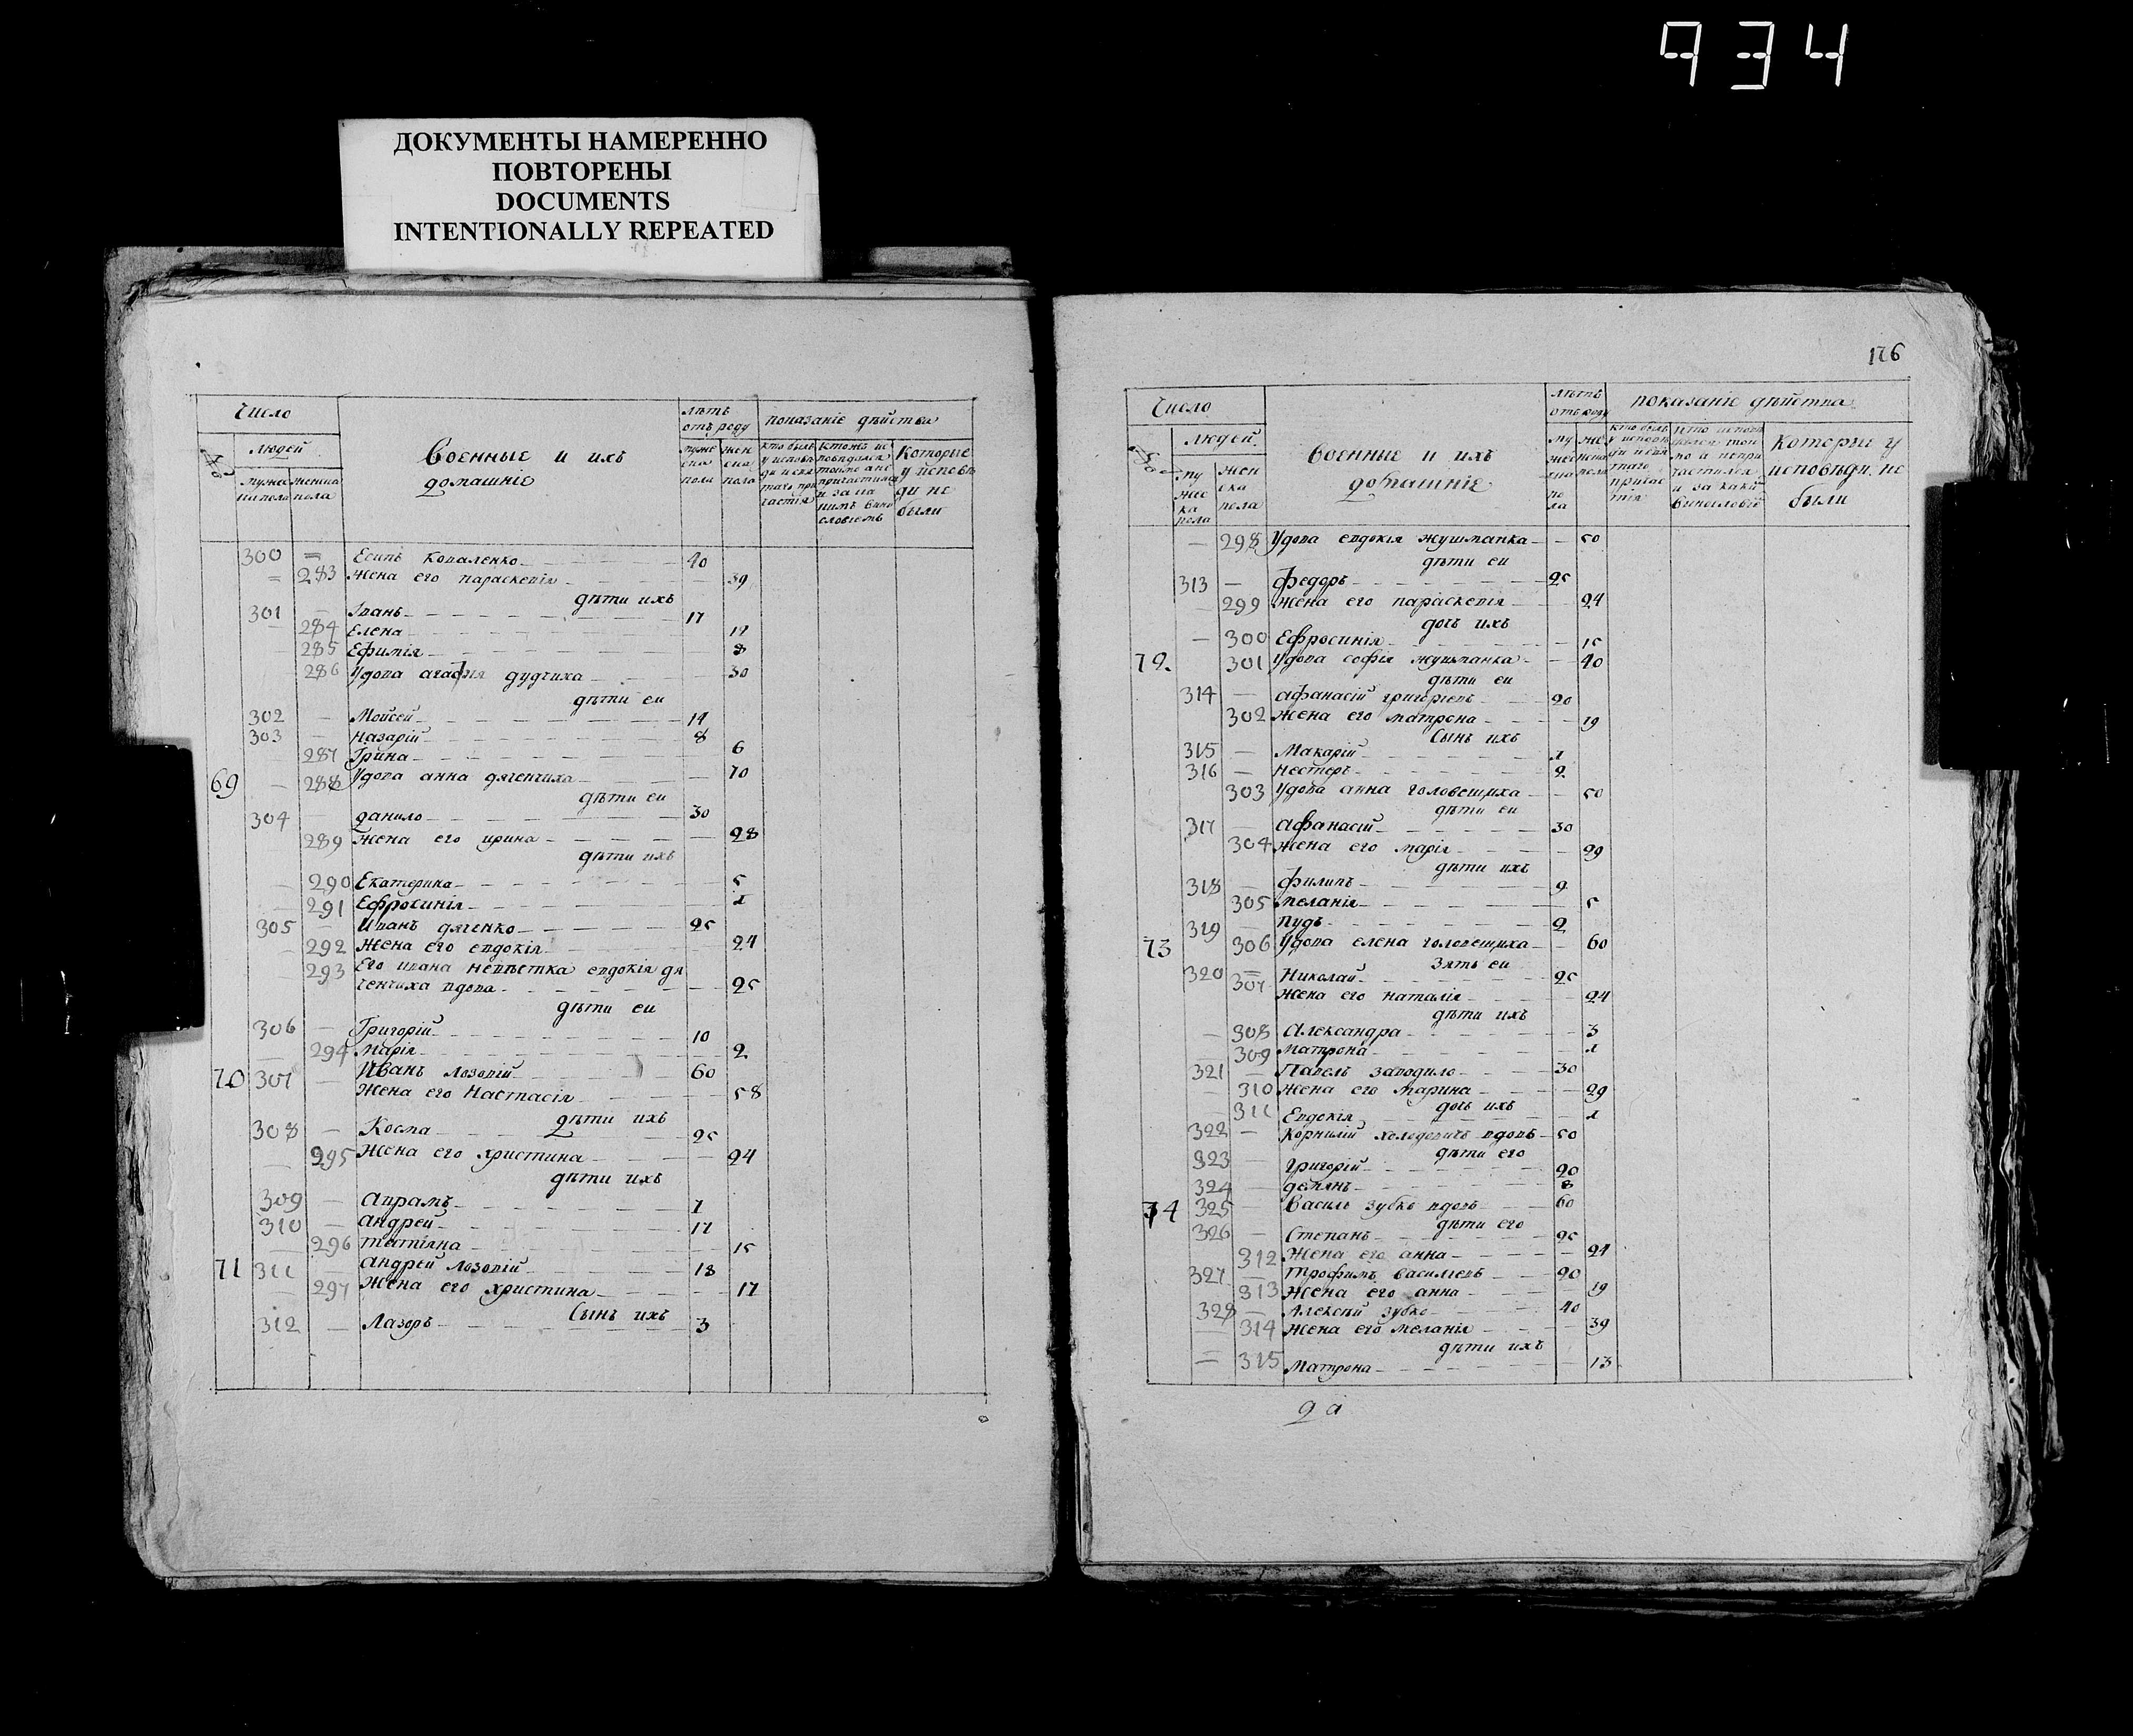 934
ДОКУМЕНТЫ НАМЕРЕННО
ПОВТОРЕНЫ
DOCUMENTS
INTENTIONALLY REPEATED
Число
лѣтъ отъ роду
показаніе дѣйства
№
людей
Военные и ихъ домашніе
мужеска пола
женска пола
Которые у исповѣди не были
300 = Есипъ Коваленко 40
= 283 Жена его параскевія 39
дѣти ихъ
301 — Іванъ 17
284 Елена 12
285 Ефимія 8
286 Удова агафія дудчиха 30
дѣти еи
302 — Мойсей 14
303 — Назарій 8
287 Ірина 6
69 — 288 Удова анна дяченчиха 70
дѣти еи
304 данило 30
289 Жена его ирина 28
дѣти ихъ
290 Екатерина 5
291 Ефросинія 1
305 — Иванъ дяченко 25
292 Жена его евдокія 24
293 Его ивана невѣстка евдокія дя
ченчиха вдова 25
дѣти еи
306 — Григорій 10
294 Марія 2
70 307 — Иванъ лозовій 60
Жена его Настасія 58
дѣти ихъ
308 — Косма 25
295 Жена его христина 24
дѣти ихъ
309 — Аврамъ 1
310 — андрей 17
296 татіяна 15
71 311 — андрей лозовій 18
297 Жена его христина 17
Сынъ ихъ
312 — Лазоръ 3
176
Число
лѣтъ отъ роду
показаніе дѣйства
№
людей
Военные и ихъ домашніе
мужеска пола
женска пола
Которые у исповѣди не были
— 298 Удова евдокія жушманка 50
дѣти еи
313 — федоръ 25
299 Жена его параскевія 24
дочь ихъ
— 300 Ефросинія 15
72. 301 Удова софія жушманка 40
дѣти еи
314 — афанасій григоріевъ 20
302 Жена его матрона 19
Сынъ ихъ
315 — Макарій 1
316 — Нестеръ 2
303 Удова анна головещиха 50
дѣти еи
317 — афанасій 30
304 Жена его марія 29
дѣти ихъ
318 — филипъ 9
305 меланія 5
319 — пудъ 2
73 306 Удова елена головещиха 60
Зять еи
320 = Николай 25
307 Жена его наталія 24
дѣти ихъ
— 308 Александра 3
309 Матрона 1
321 — Павелъ заводило 30
310 Жена его марина 29
дочь ихъ
311 Евдокія 1
322 — Корнилій холодовичъ вдовъ 50
дѣти его
323 — григорій 20
324 — демянъ 8
74 325 — Василь зубко вдовъ 60
дѣти его
326 — Степанъ 25
312 Жена его анна 24
327 — трофимъ василіевъ 20
313 Жена его анна 19
328 — Алексѣй зубко 40
314 Жена его меланія 39
дѣти ихъ
= 315 Матрона 13